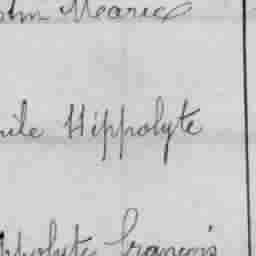 Marie
ile Hippolyte
ppolyte François